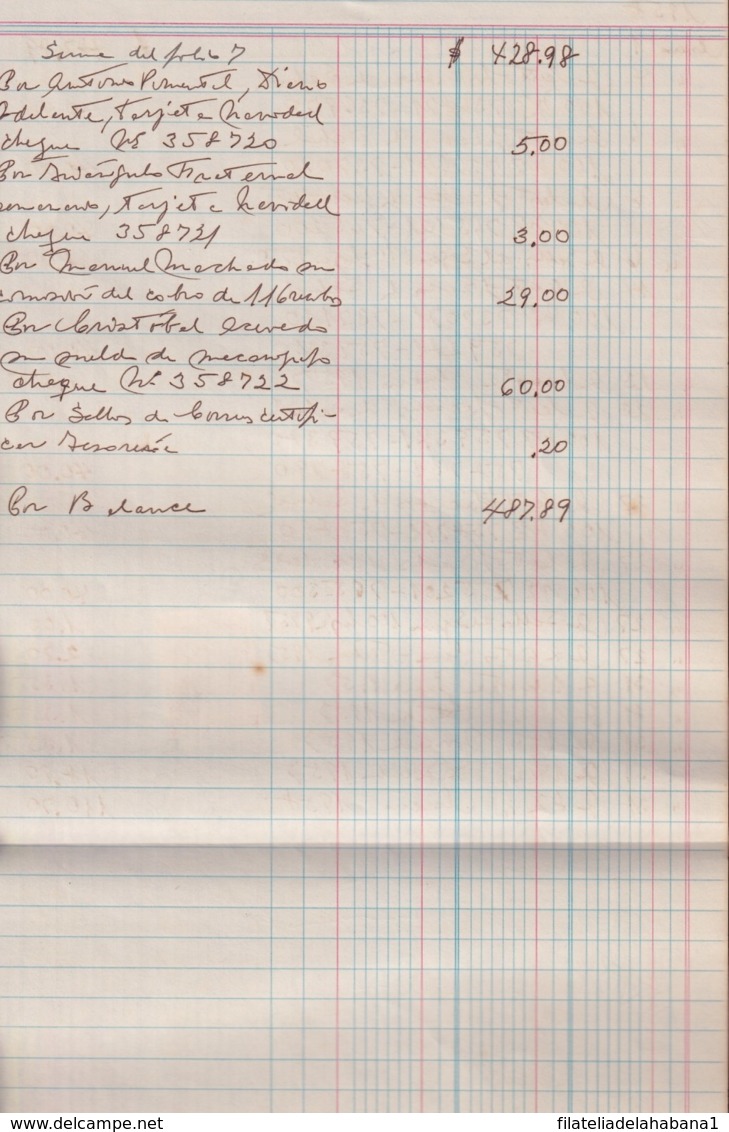 Suma del folio 7 $ 428.98
Por Antonio Pimentel, Diario
Adelante, Tarjeta Navidad
cheque Nº 358720 5.00
Por Triángulo Fraternal
, Tarjeta Navidad
cheque 358721 3.00
Por Manuel Machado su
comisión del cobro de 116 recibos 29.00
Por Cristóbal Acevedo
su sueldo de mecanógrafo
cheque Nº 358722 60.00
Por Sellos de Correos certifi-
car Tesorería .20
Por Balance 487.89
www.delcampe.net filateliadelahabana1